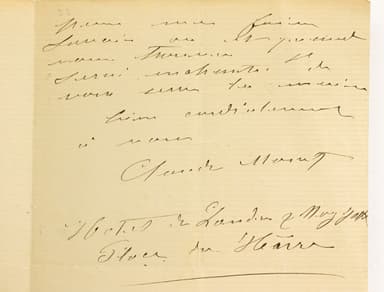 Pour me faire
savoir où et quand
vous trouver
serai enchanté de
vous serrer la main
bien cordialement
à vous
Claude Monet
Hotel de Londres &
Place du Hâvre